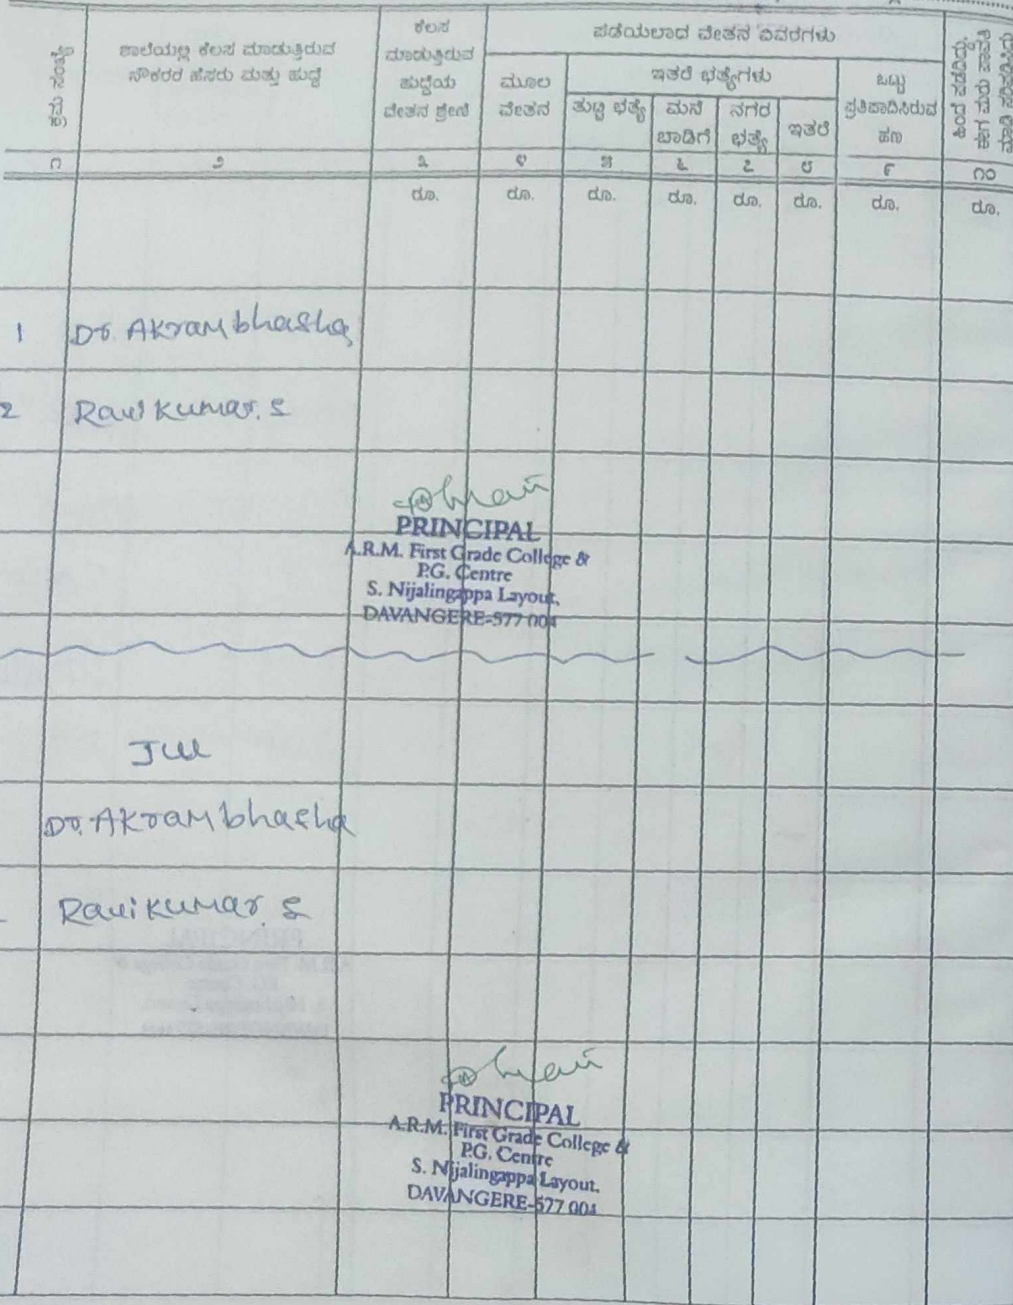 ಶಾಲೆಯಲ್ಲಿ ಕೆಲಸ ಮಾಡುತ್ತಿರುವ
ನೌಕರರ ಹೆಸರು ಮತ್ತು ಹುದ್ದೆ
ಕೆಲಸ
ಮಾಡುತ್ತಿರುವ
ಹುದ್ದೆಯ
ವೇತನ ಶ್ರೇಣಿ
ಪಡೆಯಲಾದ ವೇತನ ವಿವರಗಳು
ಮೂಲ
ವೇತನ
ಇತರೆ ಭತ್ಯೆಗಳು
ತುಟ್ಟಿ ಭತ್ಯೆ
ಮನೆ
ಬಾಡಿಗೆ
ನಗರ
ಭತ್ಯೆ
ಇತರೆ
ಒಟ್ಟು
ಪ್ರತಿಪಾದಿಸಿರುವ
ಹಣ
೧ ೨ ೩ ೪ ೫ ೬ ೭ ೮ ೯ ೧೦
ರೂ. ರೂ. ರೂ. ರೂ. ರೂ. ರೂ. ರೂ. ರೂ.
1 Dr. Akram bhasha
2 Ravi kumar. S
PRINCIPAL
A.R.M. First Grade College &
P.G. Centre
S. Nijalingappa Layout,
DAVANGERE-577 004
Dr. Akram bhasha
Ravi kumar. S
PRINCIPAL
A.R.M. First Grade College &
P.G. Centre
S. Nijalingappa Layout,
DAVANGERE-577 004